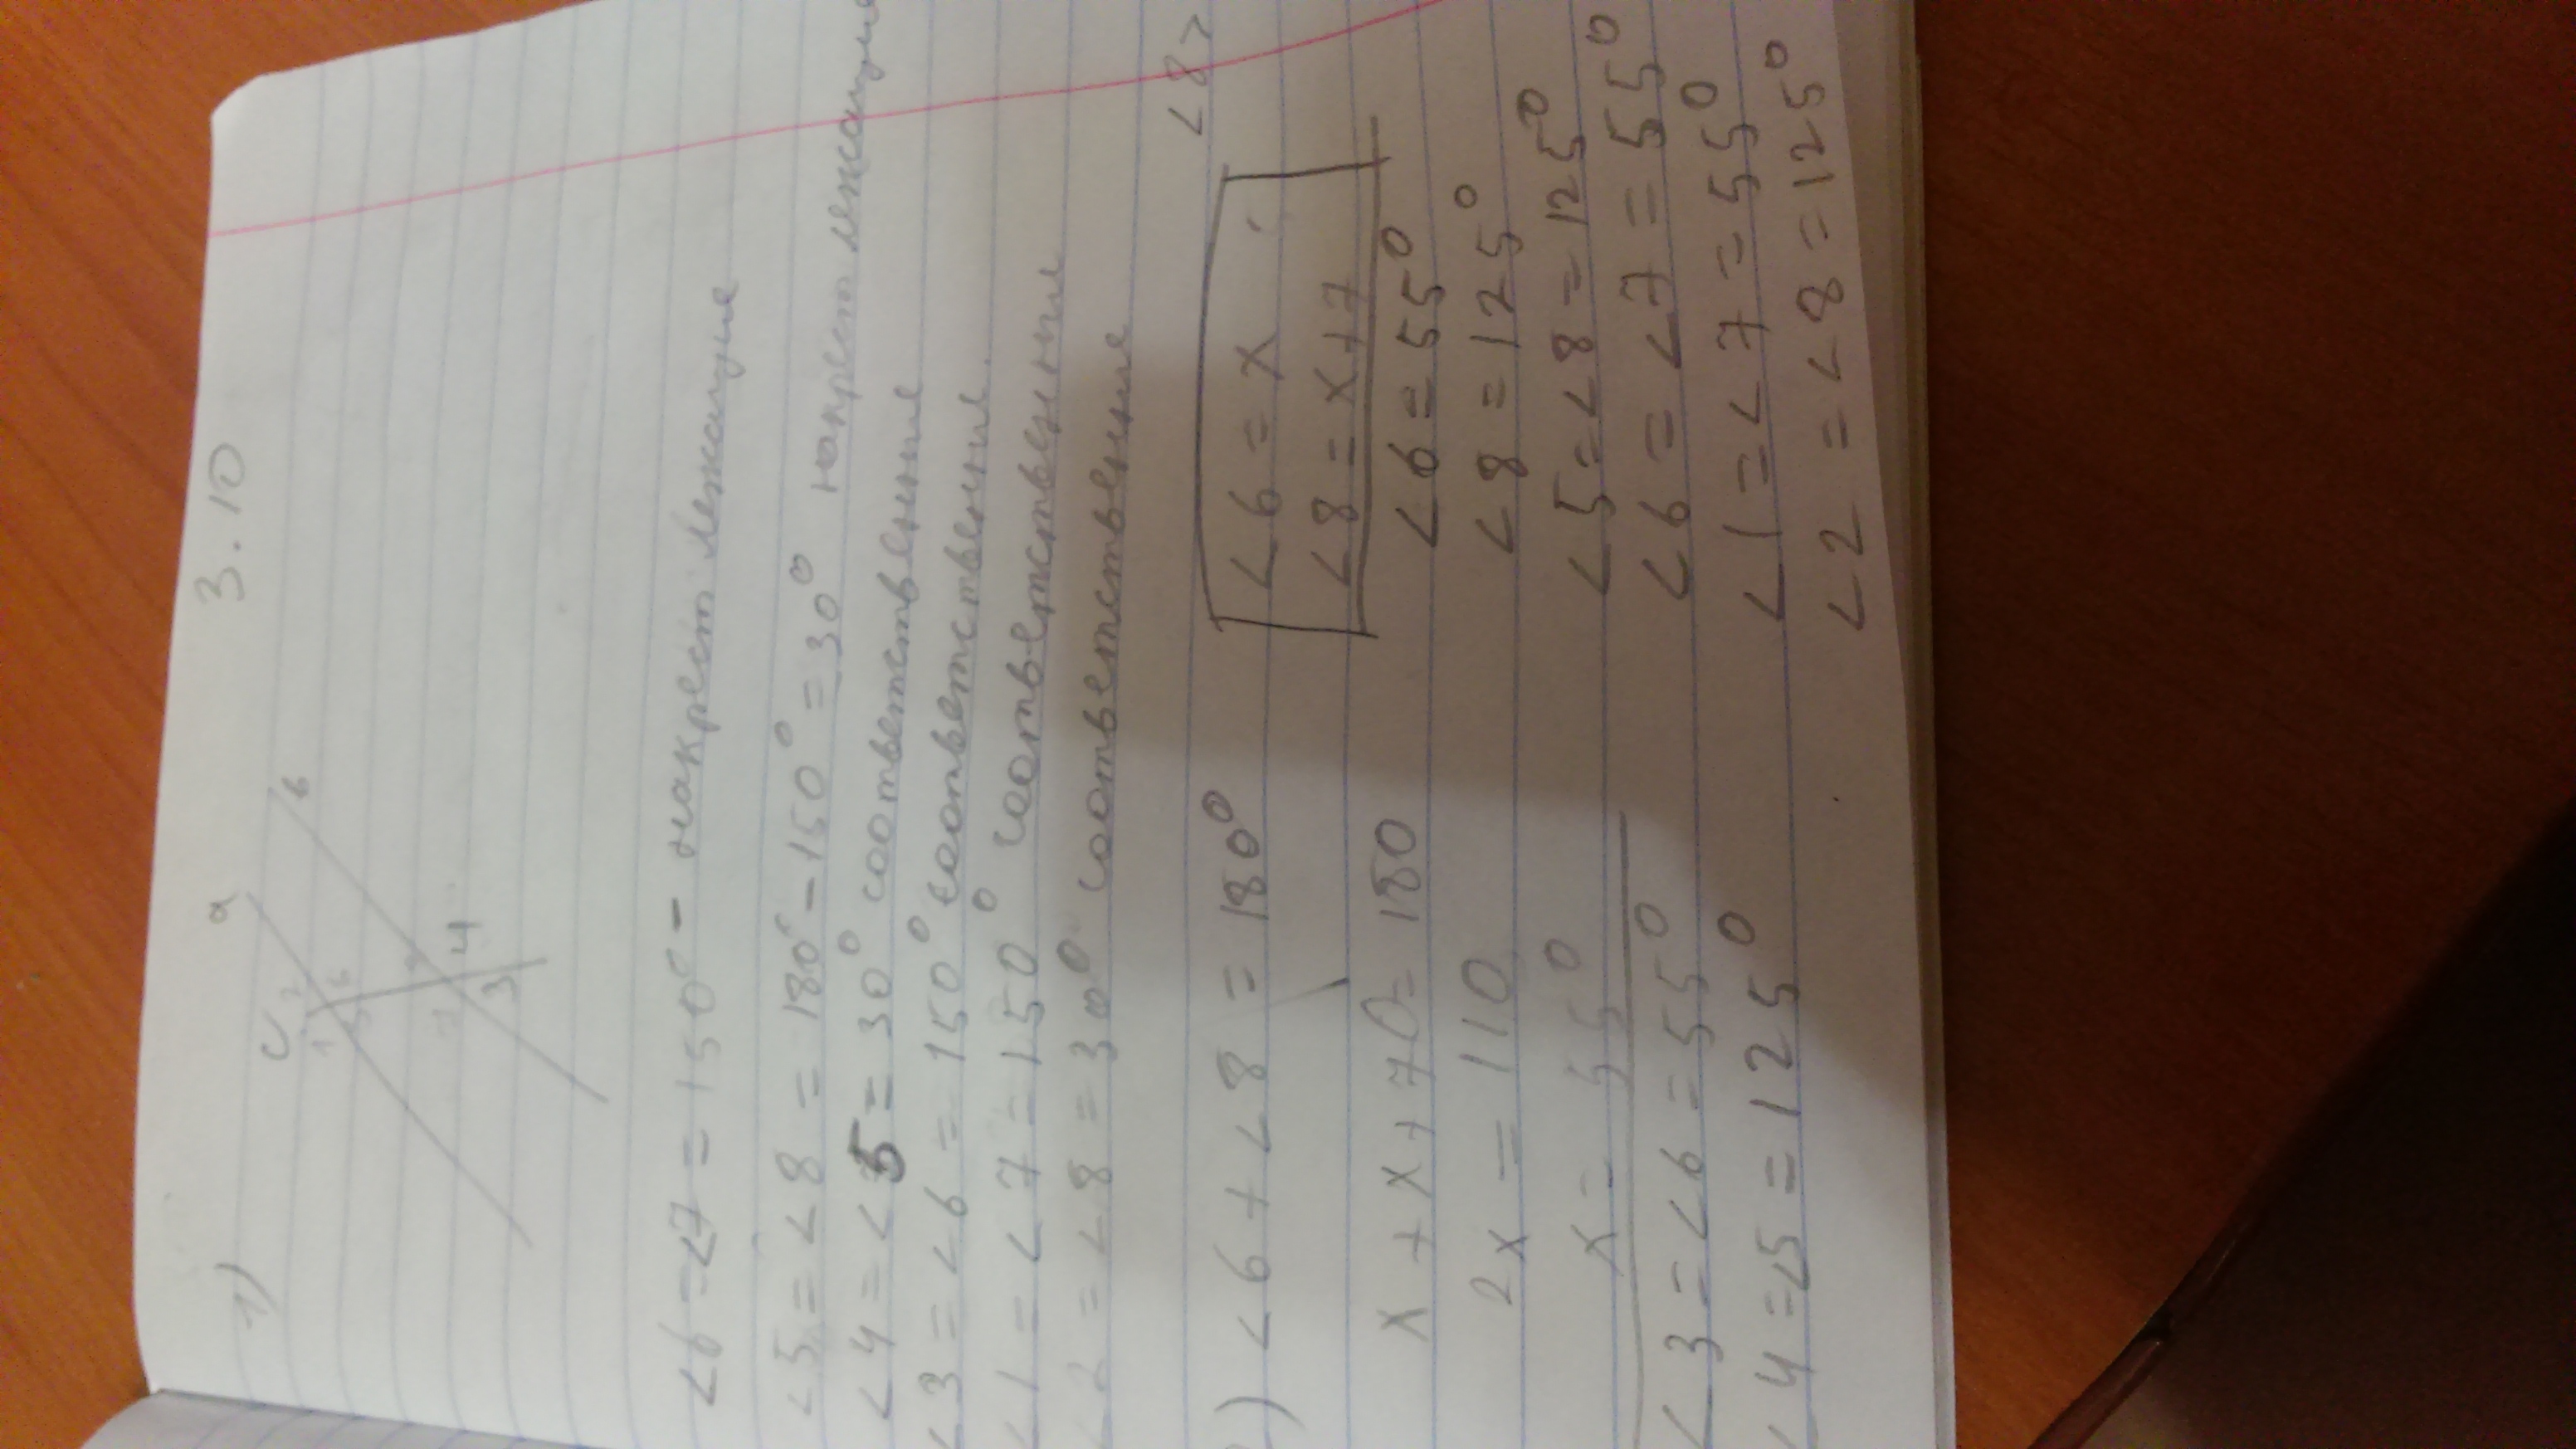 3.10
1)
a
b
c
1 2
5 6
7 8
3 4
∠6 = ∠7 = 150° - накрест лежащие
∠5 = ∠8 = 180° - 150° = 30° накрест лежащие
∠4 = ∠5 = 30° соответственные
∠3 = ∠6 = 150° соответственные
∠1 = ∠7 = 150° соответственные
∠2 = ∠8 = 30° соответственные
) ∠6 + ∠8 = 180°
∠8 >
∠6 = x
∠8 = x+7
x + x + 70 = 180
∠6 = 55°
2x = 110
∠8 = 125°
x = 55°
∠5 = ∠8 = 125°
∠3 = ∠6 = 55°
∠6 = ∠7 = 55°
∠4 = ∠5 = 125°
∠1 = ∠7 = 55°
∠2 = ∠8 = 125°